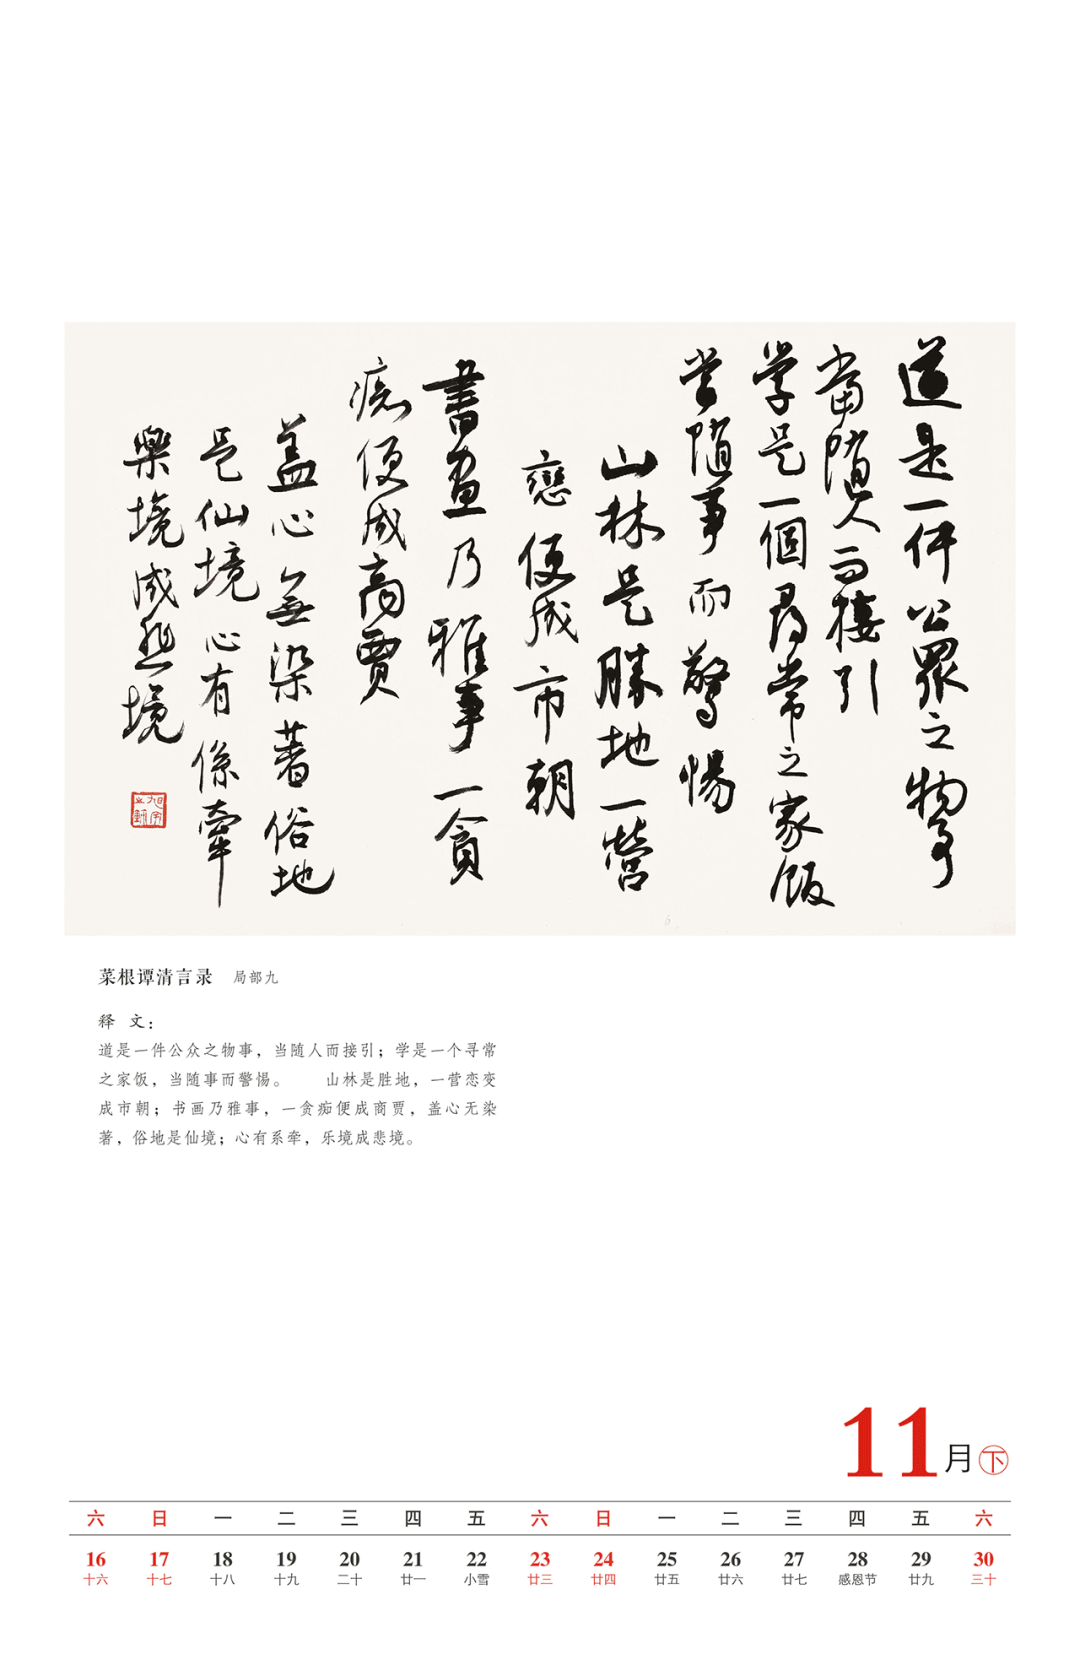 道是一件公眾之物事
當隨人而接引
学是一個尋常之家飯
當隨事而警惕
山林是勝地一營
戀便成市朝
書畫乃雅事一貪
痴便成商賈
蓋心無染著俗地
是仙境心有係牽
樂境成悲境
菜根谭清言录 局部九
释 文：
道是一件公众之物事，当随人而接引；学是一个寻常
之家饭，当随事而警惕。 山林是胜地，一营恋变
成市朝；书画乃雅事，一贪痴便成商贾，盖心无染
著，俗地是仙境；心有系牵，乐境成悲境。
11月下
六 日 一 二 三 四 五 六 日 一 二 三 四 五 六
16 17 18 19 20 21 22 23 24 25 26 27 28 29 30
十六 十七 十八 十九 二十 廿一 小雪 廿三 廿四 廿五 廿六 廿七 感恩节 廿九 三十